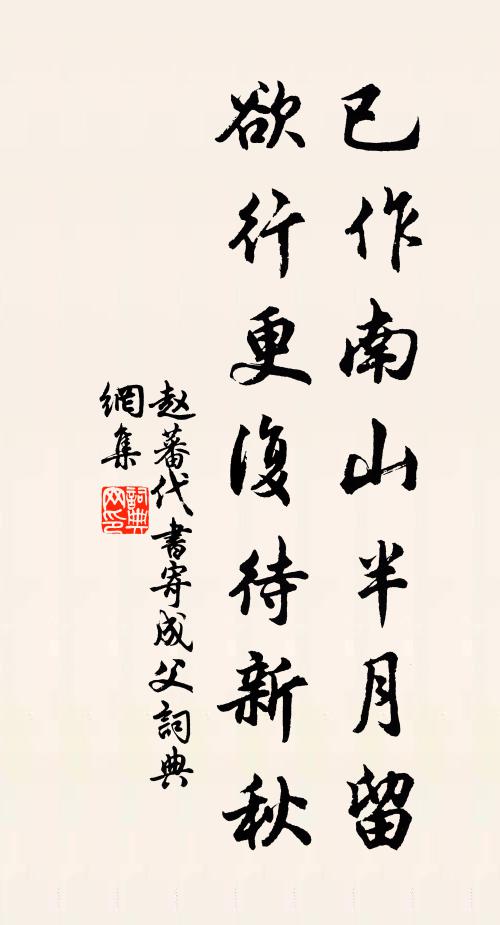 已作南山半月留
欲行更復待新秋
赵蕃代書寄成父詞典
網集
詞典网印